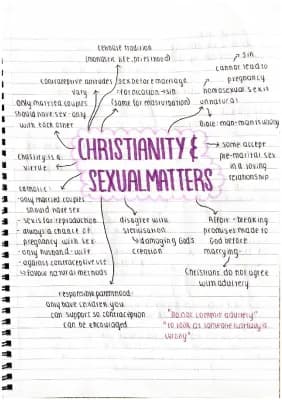 celibate tradition
(monastic life, priesthood)
contraceptive attitudes
vary
sex before marriage
- fornication → sin
(same for masturbation)
→ sin
cannot lead to
pregnancy
homosexual sex is
unnatural
Bible: man-man is wrong
only married couples
should have sex - only
with each other
CHRISTIANITY &
SEXUAL MATTERS
→ some accept
pre-marital sex
in a loving
relationship
chastity is a
virtue
catholic:
- only married couples
should have sex
- sex is for reproduction
- always a chance of
pregnancy with sex
- only husband-wife
- against contraceptive use
↳ favour natural methods
disagree with
sterilisation
↳ damaging Gods
creation
Affair - breaking
promises made to
God before
marrying
Christians do not agree
with adultery
responsible parenthood:
only have children you
can support so contraception
can be encouraged.
"Do not commit adultery"
"to look at someone lustfully is
wrong"